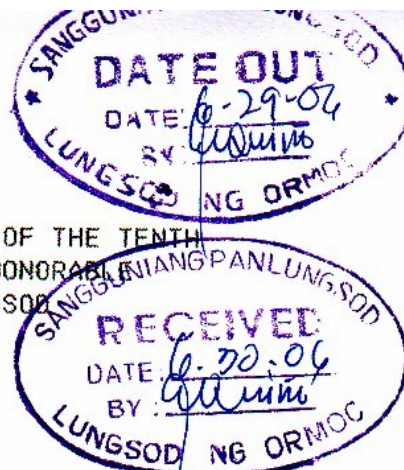 SANGGUNIANG PANLUNGSOD
DATE OUT
DATE: 6-29-06
BY:
LUNGSOD NG ORMOC
OF THE TENTH
HONORABLE
SOD
SANGGUNIANG PANLUNGSOD
RECEIVED
DATE: 6.30.06
BY:
LUNGSOD NG ORMOC